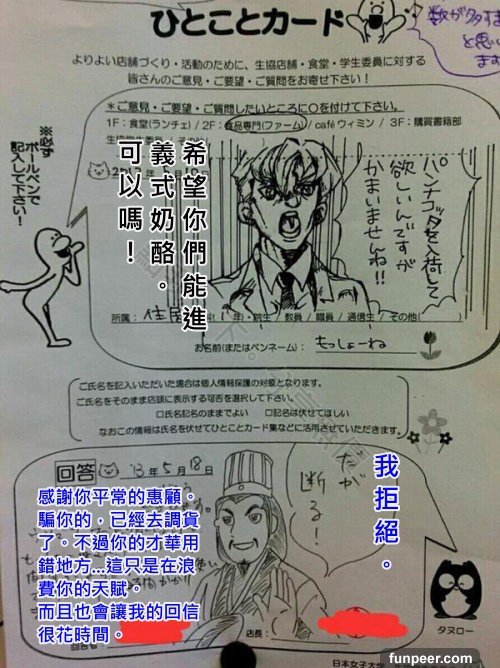 ひとことカード
数が多すぎ
と思い
ます
よりよい店舗づくり・活動のために、生協店舗・食堂・学生委員に対する
皆さんのご意見・ご要望・ご質問をお寄せ下さい！
※必ず
ボールペンで
記入して下さい！
＊ご意見・ご要望・ご質問したいところに○を付けて下さい。
1F：食堂(ランチェ) / 2F：食品専門(ファーム) / café ヴィミン / 3F：購買書籍部
パンナコッタを入荷して
欲しいんですが
かまいませんね!!
希望你們能進
義式奶酪。
可以嗎！
所属： 住居 年)・院生 / 教員 / 職員 / 通信生 / その他(
お名前(またはペンネーム)： もっしょーね
ご氏名を記入いただいた場合は個人情報保護の対象となります。
ご氏名をそのまま店頭に表示する可否を選択して下さい。
□氏名記名のままでよい　□記名は伏せてほしい
なおこの情報は氏名を伏せてひとことカード集などに活用させていただきます。
回答 '13年5月18日
だが
断る！
我拒絕。
感謝你平常的惠顧。
騙你的，已經去調貨
了。不過你的才華用
錯地方...這只是在浪
費你的天賦。
而且也會讓我的回信
很花時間。
回答者
店長：
タヌロー
日本女子大
funpeer.com